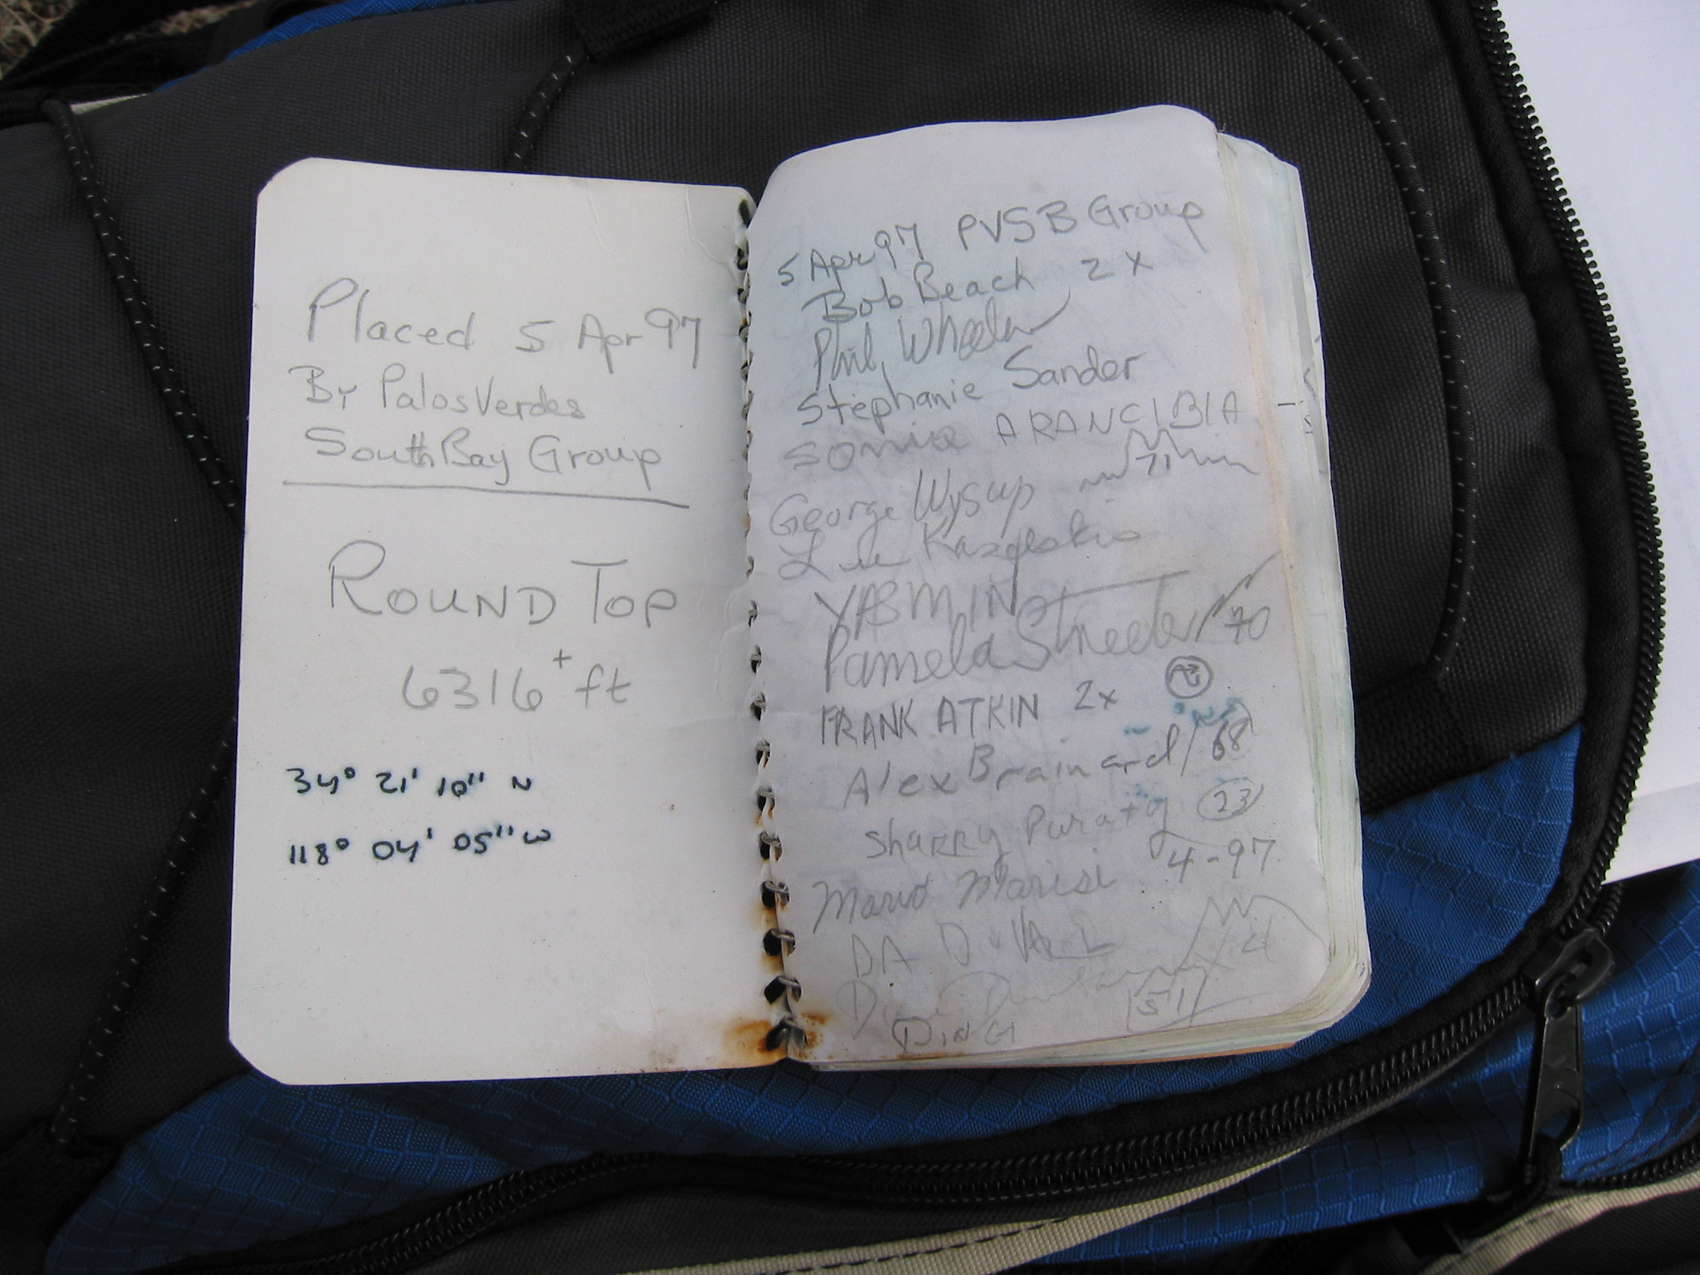 Placed 5 Apr 97
By Palos Verdes
South Bay Group
ROUND TOP
6316+ ft
34° 21' 10" N
118° 04' 05" W
5 Apr 97 PVSB Group
Bob Beach 2x
Phil Wheeler
Stephanie Sander
Sonia ARANCIBIA
George Wysup 71
YASMIN
Pamela Streeter / 70
FRANK ATKIN 2x
Alex Brainard / 68
Sharry 23
Mario 4-97
DA
51
DING